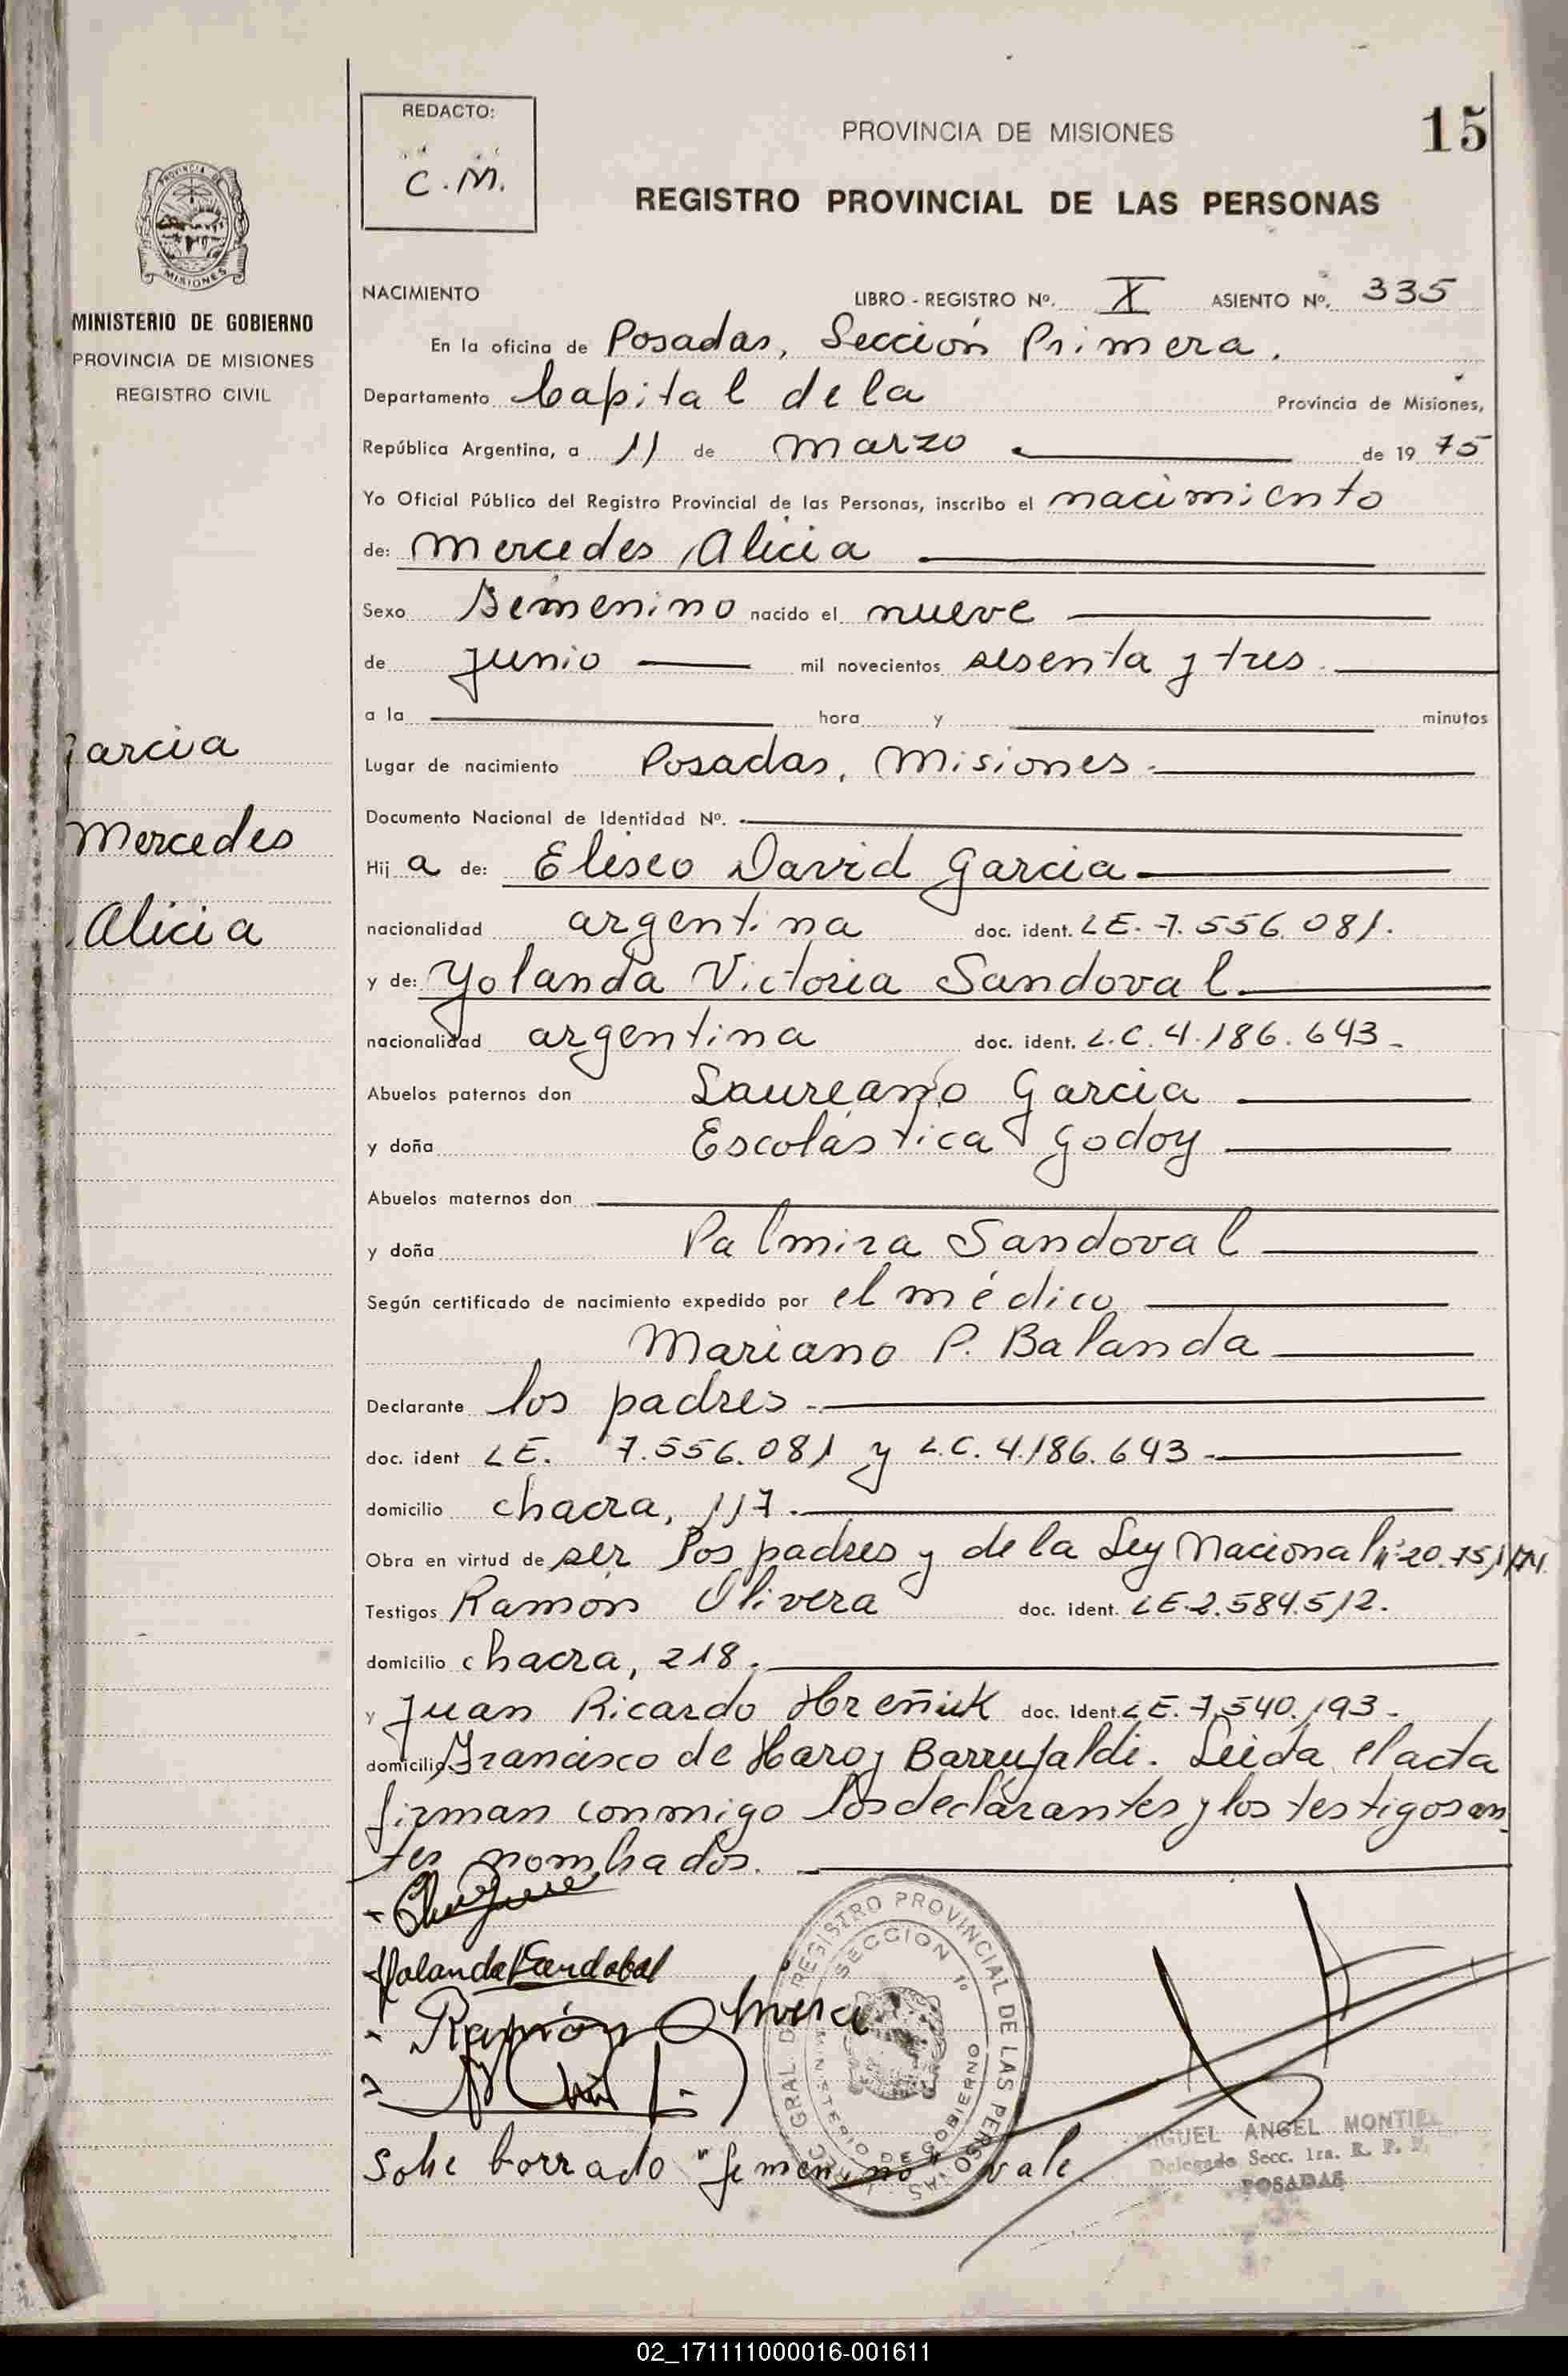 REDACTO:
C.M.
PROVINCIA DE MISIONES
15
REGISTRO PROVINCIAL DE LAS PERSONAS
PROVINCIA DE
MISIONES
MINISTERIO DE GOBIERNO
PROVINCIA DE MISIONES
REGISTRO CIVIL
Garcia
Mercedes
Alicia
NACIMIENTO LIBRO - REGISTRO Nº. X ASIENTO Nº. 335
En la oficina de Posadas, Sección Primera.
Departamento Capital de la Provincia de Misiones,
República Argentina, a 11 de marzo de 1975
Yo Oficial Público del Registro Provincial de las Personas, inscribo el nacimiento
de: Mercedes Alicia
Sexo Femenino nacido el nueve
de junio mil novecientos sesenta y tres.
a la hora y minutos
Lugar de nacimiento Posadas, Misiones.
Documento Nacional de Identidad Nº.
Hij a de: Eliseo David Garcia
nacionalidad argentina doc. ident. LE. 7.556.081.
y de: Yolanda Victoria Sandoval.
nacionalidad argentina doc. ident. L.C. 4.186.643.
Abuelos paternos don Laureano Garcia
y doña Escolástica Godoy
Abuelos maternos don
y doña Palmira Sandoval
Según certificado de nacimiento expedido por el médico
Mariano P. Balanda
Declarante los padres.
doc. ident LE. 7.556.081 y L.C. 4.186.643.
domicilio chacra, 117.
Obra en virtud de ser los padres y de la Ley Nacional nº 20.751/74.
Testigos Ramón Olivera doc. ident. LE.2.584.512.
domicilio chacra, 218.
y Juan Ricardo Hreñuk doc. ident. LE.7.540.193.
domicilio Francisco de Haro y Barrufaldi. Leida el acta
firman conmigo los declarantes y los testigos an
tes nombrados.
Yolanda Sandobal
Ramón Olivera
REGISTRO PROVINCIAL DE LAS PERSONAS
SECCION 1º
MINISTERIO DE GOBIERNO
MIGUEL ANGEL MONTIEL
Delegado Secc. 1ra. R. P. P.
POSADAS
Sobre borrado "femenino" vale.
02_171111000016-001611